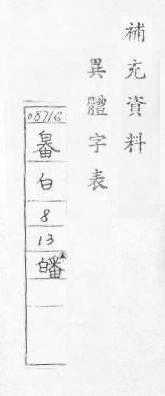 補充資料
異體字表
08716
白
8
13
皤